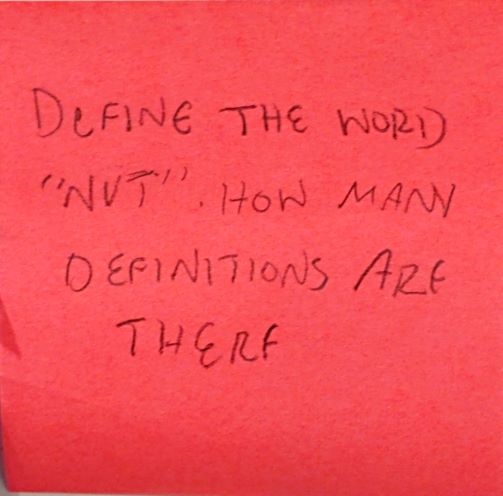 DeFINE THE WORD
"NUT". HOW MANY
DEFINITIONS ARE
THERE